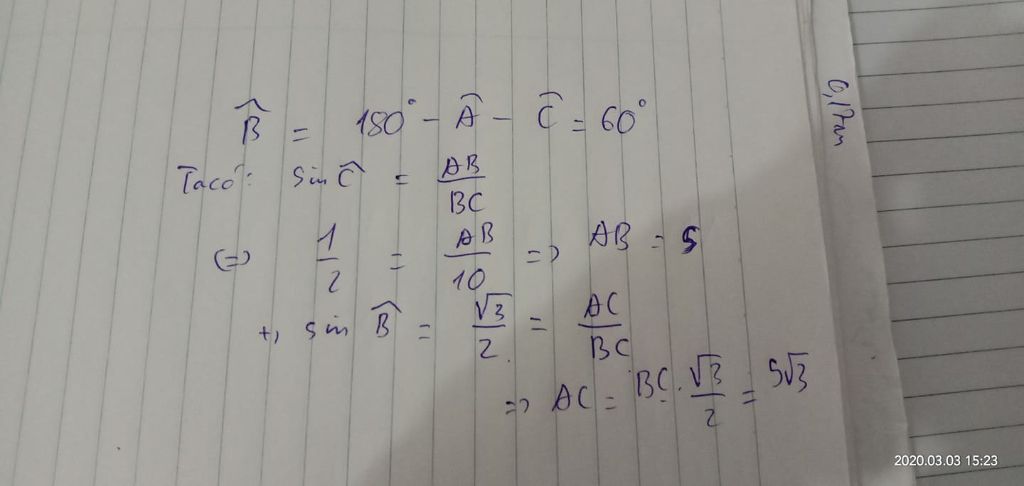 B̂ = 180° - Â - Ĉ = 60°
Ta có: sin Ĉ = AB/BC
(=) 1/2 = AB/10 => AB = 5
+, sin B̂ = √3/2 = AC/BC
=> AC = BC . √3/2 = 5√3
2020.03.03 15:23